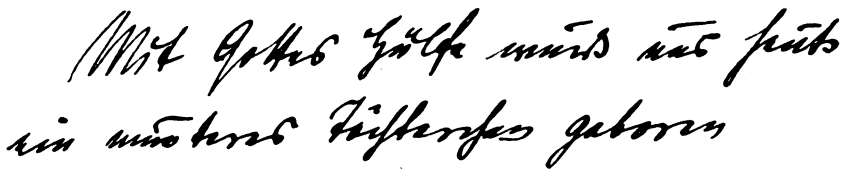 Mit Gottes Hülfe wurde uns heute
ein munteres Töchterchen geboren